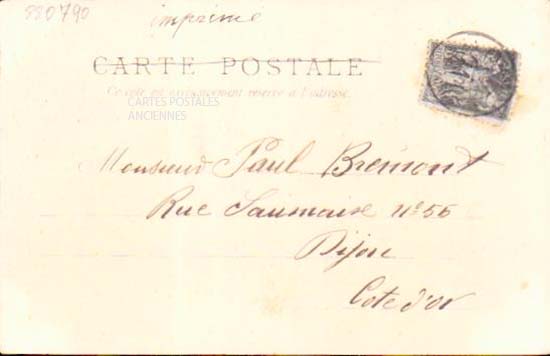 880790
imprimé
CARTE POSTALE
Ce côté est exclusivement réservé à l'adresse.
CARTES POSTALES
ANCIENNES
Monsieur Paul Bremont
Rue Saumaise nº 56
Dijon
Cote d'or